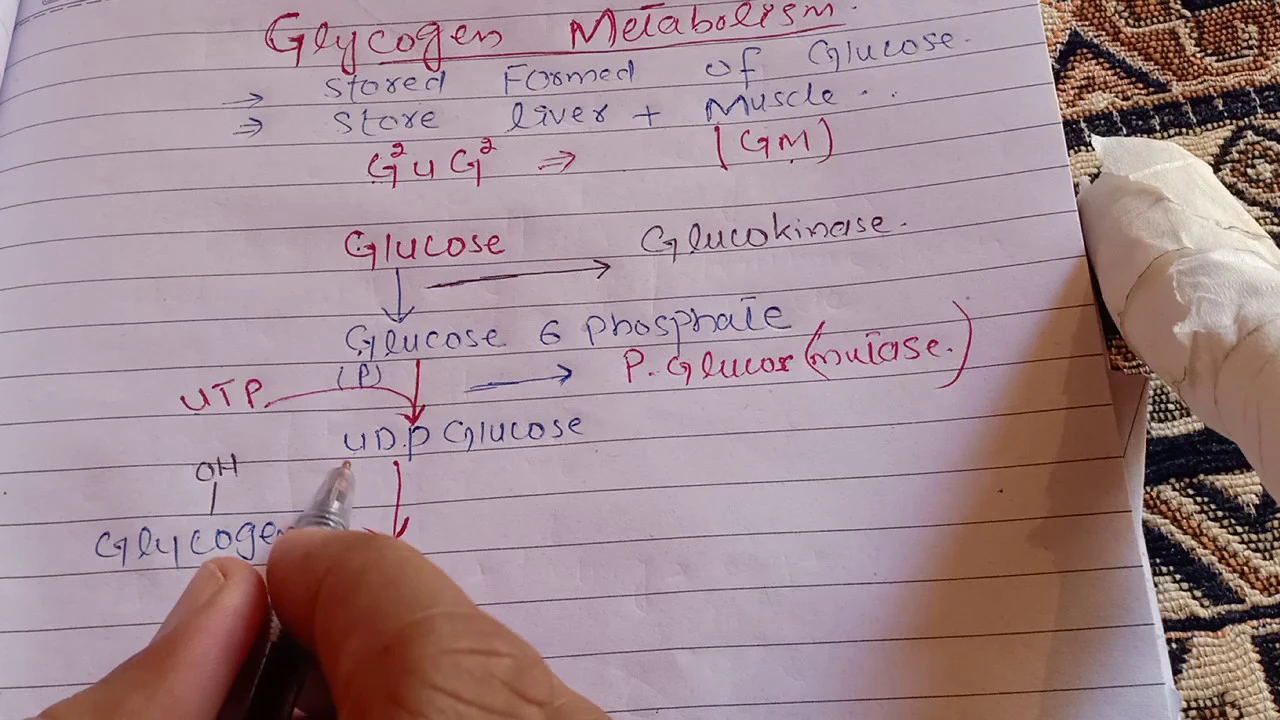 Glycogen Metabolism.
→ Stored Formed of Glucose.
⇒ Store liver + Muscle..
G²uG² ⇒ (GM)
Glucose → Glucokinase.
Glucose 6 phosphate
(P) → P. Glucos (mutase.)
UTP.
U D.P Glucose
OH
Glycogen